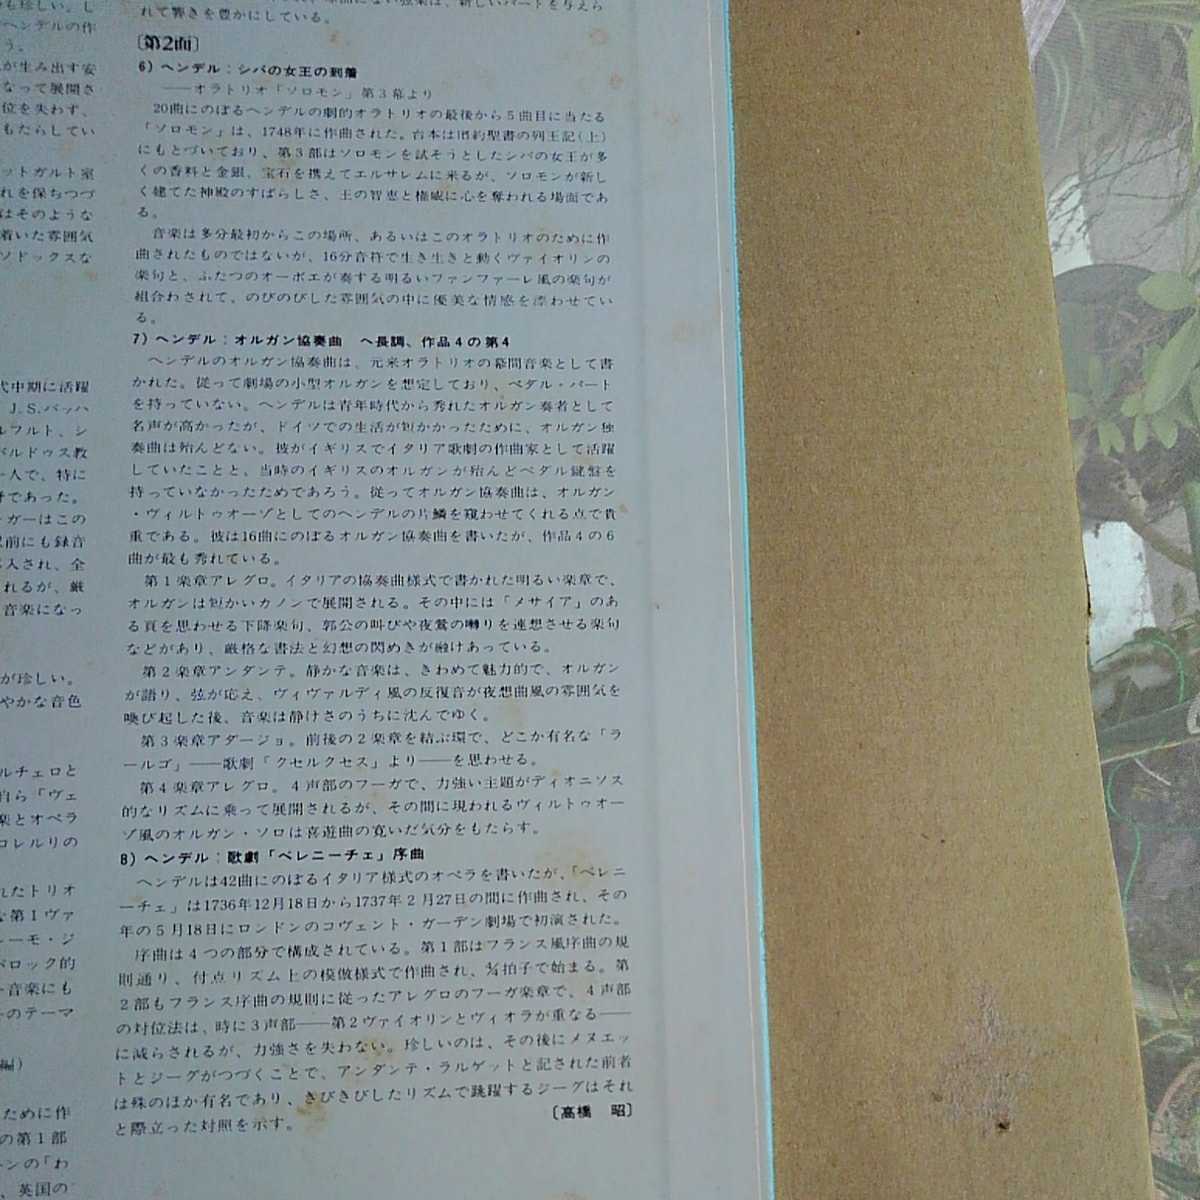 も珍しい。し
ヘンデルの作
う。
が生み出す安
なって展開さ
位を失わず、
もたらしてい
ットガルト室
れを保ちつづ
はそのような
着いた雰囲気
ソドックスな
代中期に活躍
J.S.バッハ
ルフルト、シ
バルドゥス教
一人で、特に
であった。
ーガーはこの
以前にも録音
入され、全
れるが、厳
音楽になっ
が珍しい。
やかな音色
ルチェロと
自ら「ヴェ
楽とオペラ
コレルリの
れたトリオ
な第1ヴァ
レーモ・ジ
バロック的
音楽にも
そのテーマ
編）
ために作
の第1部
ンの「わ
、英国の
弦楽は、新しいパートを与えら
れて響きを豊かにしている。
〔第2面〕
6）ヘンデル：シバの女王の到着
——オラトリオ「ソロモン」第3幕より
20曲にのぼるヘンデルの劇的オラトリオの最後から5曲目に当たる
「ソロモン」は、1748年に作曲された。台本は旧約聖書の列王記（上）
にもとづいており、第3部はソロモンを試そうとしたシバの女王が多
くの香料と金銀、宝石を携えてエルサレムに来るが、ソロモンが新し
く建てた神殿のすばらしさ、王の智恵と権威に心を奪われる場面であ
る。
音楽は多分最初からこの場所、あるいはこのオラトリオのために作
曲されたものではないが、16分音符で生き生きと動くヴァイオリンの
楽句と、ふたつのオーボエが奏する明るいファンファーレ風の楽句が
組合わされて、のびのびした雰囲気の中に優美な情感を漂わせてい
る。
7）ヘンデル：オルガン協奏曲　ヘ長調、作品4の第4
ヘンデルのオルガン協奏曲は、元来オラトリオの幕間音楽として書
かれた。従って劇場の小型オルガンを想定しており、ペダル・パート
を持っていない。ヘンデルは青年時代から秀れたオルガン奏者として
名声が高かったが、ドイツでの生活が短かかったために、オルガン独
奏曲は殆んどない。彼がイギリスでイタリア歌劇の作曲家として活躍
していたことと、当時のイギリスのオルガンが殆んどペダル鍵盤を
持っていなかったためであろう。従ってオルガン協奏曲は、オルガン
・ヴィルトゥオーゾとしてのヘンデルの片鱗を窺わせてくれる点で貴
重である。彼は16曲にのぼるオルガン協奏曲を書いたが、作品4の6
曲が最も秀れている。
第1楽章アレグロ。イタリアの協奏曲様式で書かれた明るい楽章で、
オルガンは短かいカノンで展開される。その中には「メサイア」のあ
る頁を思わせる下降楽句、郭公の叫びや夜鶯の囀りを連想させる楽句
などがあり、厳格な書法と幻想の閃めきが融けあっている。
第2楽章アンダンテ。静かな音楽は、きわめて魅力的で、オルガン
が語り、弦が応え、ヴィヴァルディ風の反復音が夜想曲風の雰囲気を
喚び起した後、音楽は静けさのうちに沈んでゆく。
第3楽章アダージョ。前後の2楽章を結ぶ環で、どこか有名な「ラ
ールゴ」——歌劇「クセルクセス」より——を思わせる。
第4楽章アレグロ。4声部のフーガで、力強い主題がディオニソス
的なリズムに乗って展開されるが、その間に現われるヴィルトゥオー
ゾ風のオルガン・ソロは喜遊曲の寛いだ気分をもたらす。
8）ヘンデル：歌劇「ベレニーチェ」序曲
ヘンデルは42曲にのぼるイタリア様式のオペラを書いたが、「ベレニ
ーチェ」は1736年12月18日から1737年2月27日の間に作曲され、その
年の5月18日にロンドンのコヴェント・ガーデン劇場で初演された。
序曲は4つの部分で構成されている。第1部はフランス風序曲の規
則通り、付点リズム上の模倣様式で作曲され、拍子で始まる。第
2部もフランス序曲の規則に従ったアレグロのフーガ楽章で、4声部
の対位法は、時に3声部——第2ヴァイオリンとヴィオラが重なる——
に減らされるが、力強さを失わない。珍しいのは、その後にメヌエッ
トとジーグがつづくことで、アンダンテ・ラルゲットと記された前者
は殊のほか有名であり、きびきびしたリズムで跳躍するジーグはそれ
と際立った対照を示す。
〔高橋　昭〕